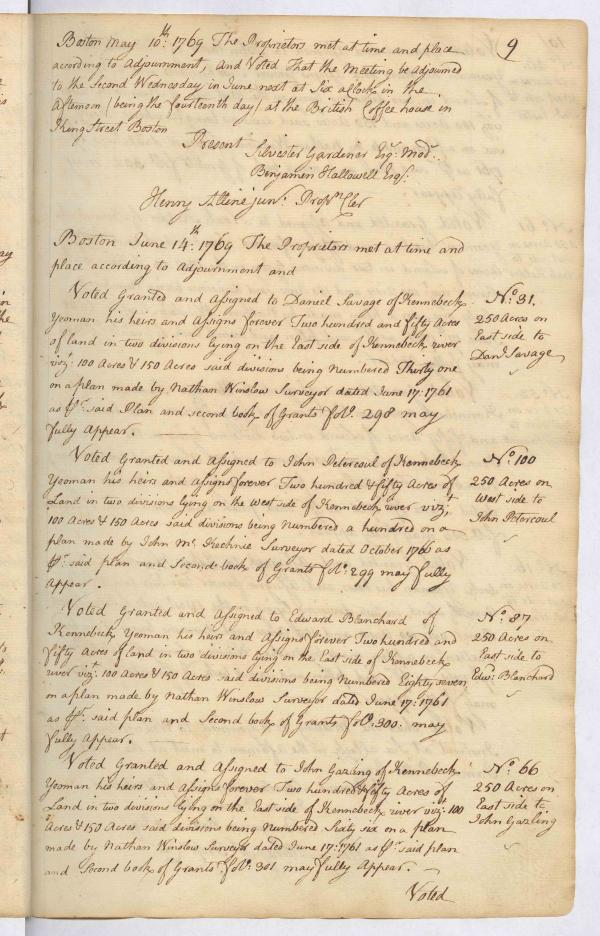 9
Boston May 10th: 1769 The Proprietors met at time and place
according to Adjournment, and Voted That the Meeting be Adjourned
to the Second Wednesday in June next at Six aClock in the
Afternoon (being the fourteenth day) at the British Coffee house in
King Street Boston
Present
Silvester Gardiner Esqr: Modr.
Benjamin Hallowell Esqr:
Henry Alline junr: Propn Cler
Boston June 14th: 1769 The Proprietors met at time and
place according to Adjournment and
Voted Granted and Assigned to Daniel Savage of Kennebeck
Yeoman his heirs and Assigns forever Two hundred and fifty Acres
of land in two divisions lying on the East side of Kennebeck river
vizt: 100 Acres & 150 Acres said divisions being Numbered Thirty one
on a plan made by Nathan Winslow Surveyor dated June 17: 1761
as pr. said Plan and second book of Grants folo. 298 may
fully Appear.
No: 31.
250 Acres on
East side to
Danl Savage
Voted Granted and Assigned to John Petercoul of Kennebeck
Yeoman his heirs and Assigns forever Two hundred & fifty Acres of
Land in two divisions lying on the West side of Kennebeck river vizt:
100 Acres & 150 Acres said divisions being Numbered a hundred on a
plan made by John Mc Kechnie Surveyor dated October 1766 as
pr. said plan and Second book of Grants folo: 299 may fully
Appear.
No: 100
250 Acres on
West side to
John Petercoul
Voted Granted and Assigned to Edward Blanchard of
Kennebeck Yeoman his heirs and Assigns forever Two hundred and
fifty Acres of land in two divisions lying on the East side of Kennebeck
river vizt: 100 Acres & 150 Acres said divisions being Numbered Eighty seven
on a plan made by Nathan Winslow Surveyor dated June 17: 1761
as pr. said plan and Second book of Grants folo: 300: may
fully Appear.
No: 87
250 Acres on
East side to
Edwd: Blanchard
Voted Granted and Assigned to John Gazling of Kennebeck
Yeoman his heirs and Assigns forever Two hundred & fifty Acres of
Land in two divisions lying on the East side of Kennebeck river vizt: 100
Acres & 150 Acres said divisions being Numbered Sixty six on a plan
made by Nathan Winslow Surveyor dated June 17: 1761 as pr. said plan
and Second book of Grants folo: 301 may fully Appear.
No: 66
250 Acres on
East side to
John Gazling
Voted